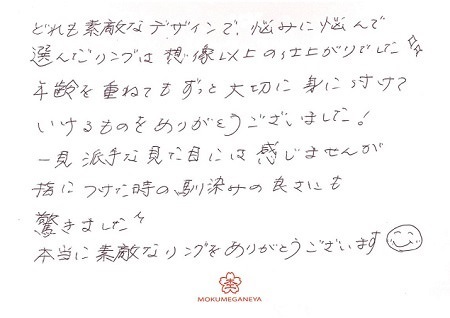 どれも素敵なデザインで、悩みに悩んで
選んだリングは想像以上の仕上がりでした✨
年齢を重ねてもずっと大切に身に付けて
いけるものをありがとうございました!
一見派手な見た目には感じませんが
指につけた時の馴染みの良さにも
驚きました
本当に素敵なリングをありがとうございます
MOKUMEGANEYA